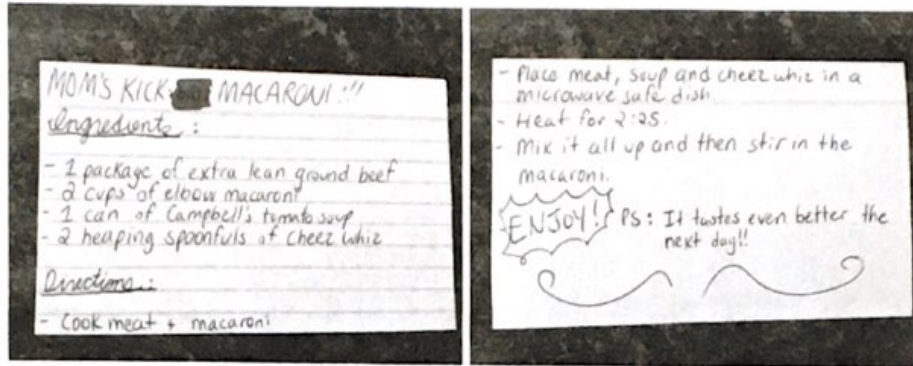 MOM'S KICK MACARONI!!!
Ingredients:
- 1 package of extra lean ground beef
- 2 cups of elbow macaroni
- 1 can of Campbell's tomato soup
- 2 heaping spoonfuls of cheez whiz
Directions:
- Cook meat + macaroni
- Place meat, soup and cheez whiz in a
microwave safe dish.
- Heat for 2:25.
- Mix it all up and then stir in the
macaroni.
ENJOY! PS: It tastes even better the
next day!!